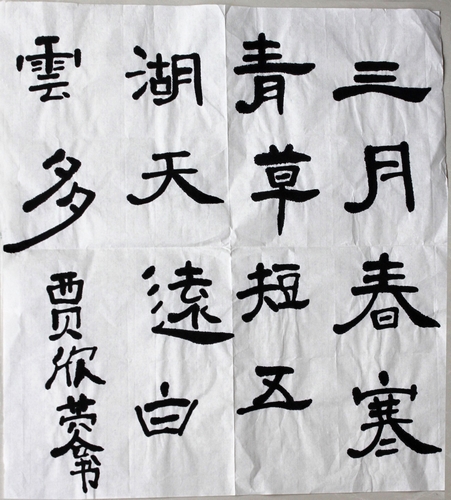 三月春寒
青草短五
湖天遠白
雲多
贾欣书